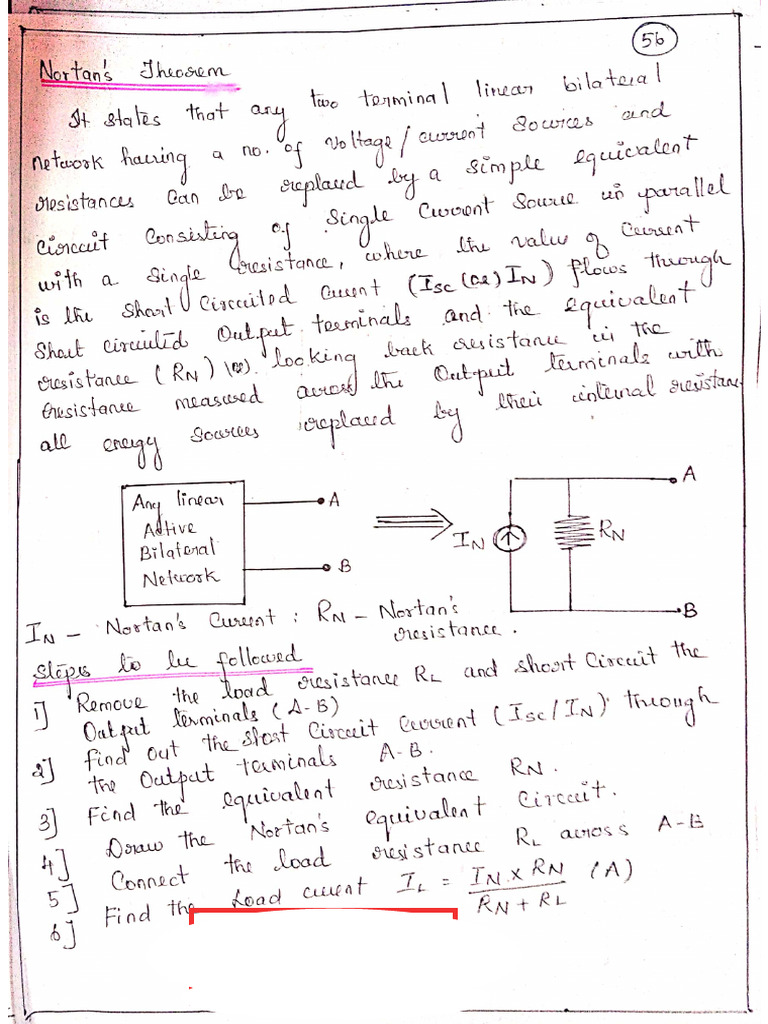 56
Nortan's Theorem
It states that any two terminal linear bilateral
network having a no. of voltage/current sources and
resistances can be replaced by a simple equivalent
circuit consisting of single current source in parallel
with a single resistance, where the value of current
is the short circuited current (ISC (or) IN) flows through
short circuited output terminals and the equivalent
resistance (RN) (or) looking back resistance in the
resistance measured across the output terminals with
all energy sources replaced by their internal resistance
Any linear
Active
Bilateral
Network
A
B
IN
RN
A
B
IN - Nortan's Current : RN - Nortan's
resistance.
Steps to be followed
1] Remove the load resistance RL and short circuit the
output terminals (A-B)
2] find out the short circuit current (ISC/IN) through
the output terminals A-B.
3] Find the equivalent resistance RN.
4] Draw the Nortan's equivalent circuit.
5] Connect the load resistance RL across A-B
6] Find the Load current IL = IN x RN / RN + RL (A)